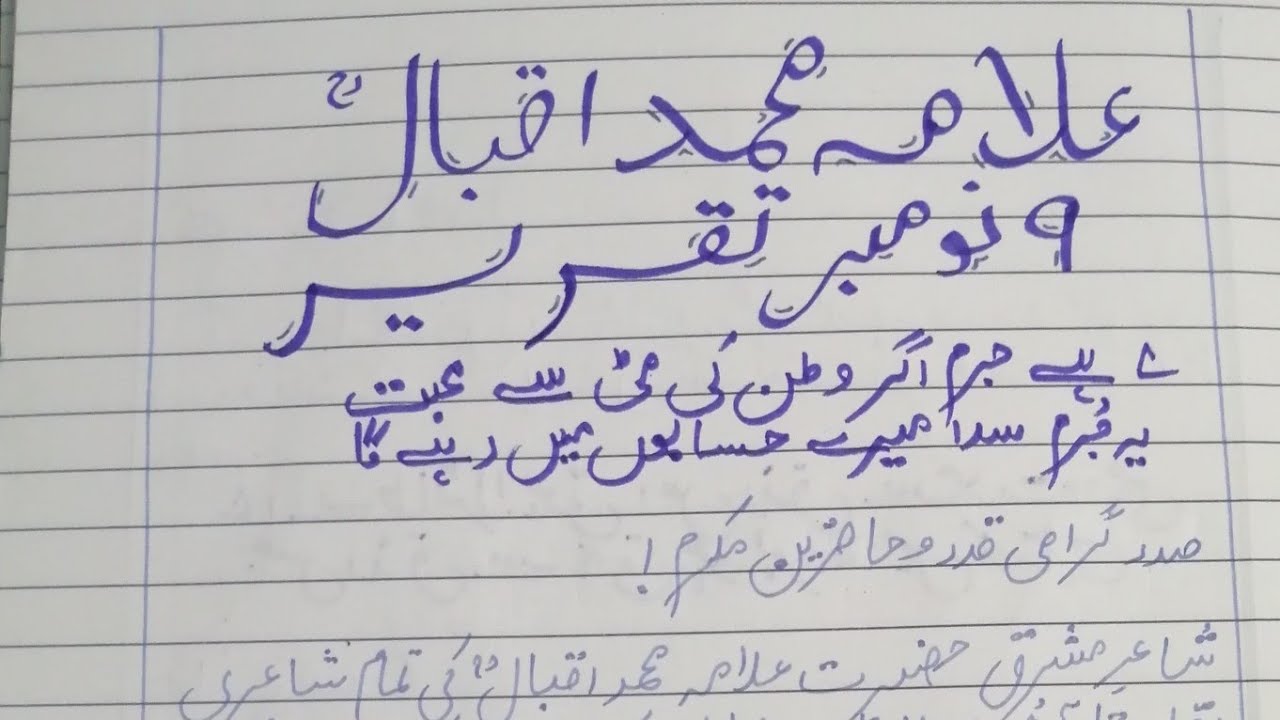 علامہ محمد اقبالؒ
۹ نومبر تقریر
ے ہے جرم اگر وطن کی مٹی سے محبت
یہ جُرم سدا میرے حسابوں میں رہے گا
صدر گرامی قدر و حاضرین مکرم!
شاعرِ مشرق حضرت علامہ محمد اقبالؒ کی تمام شاعری